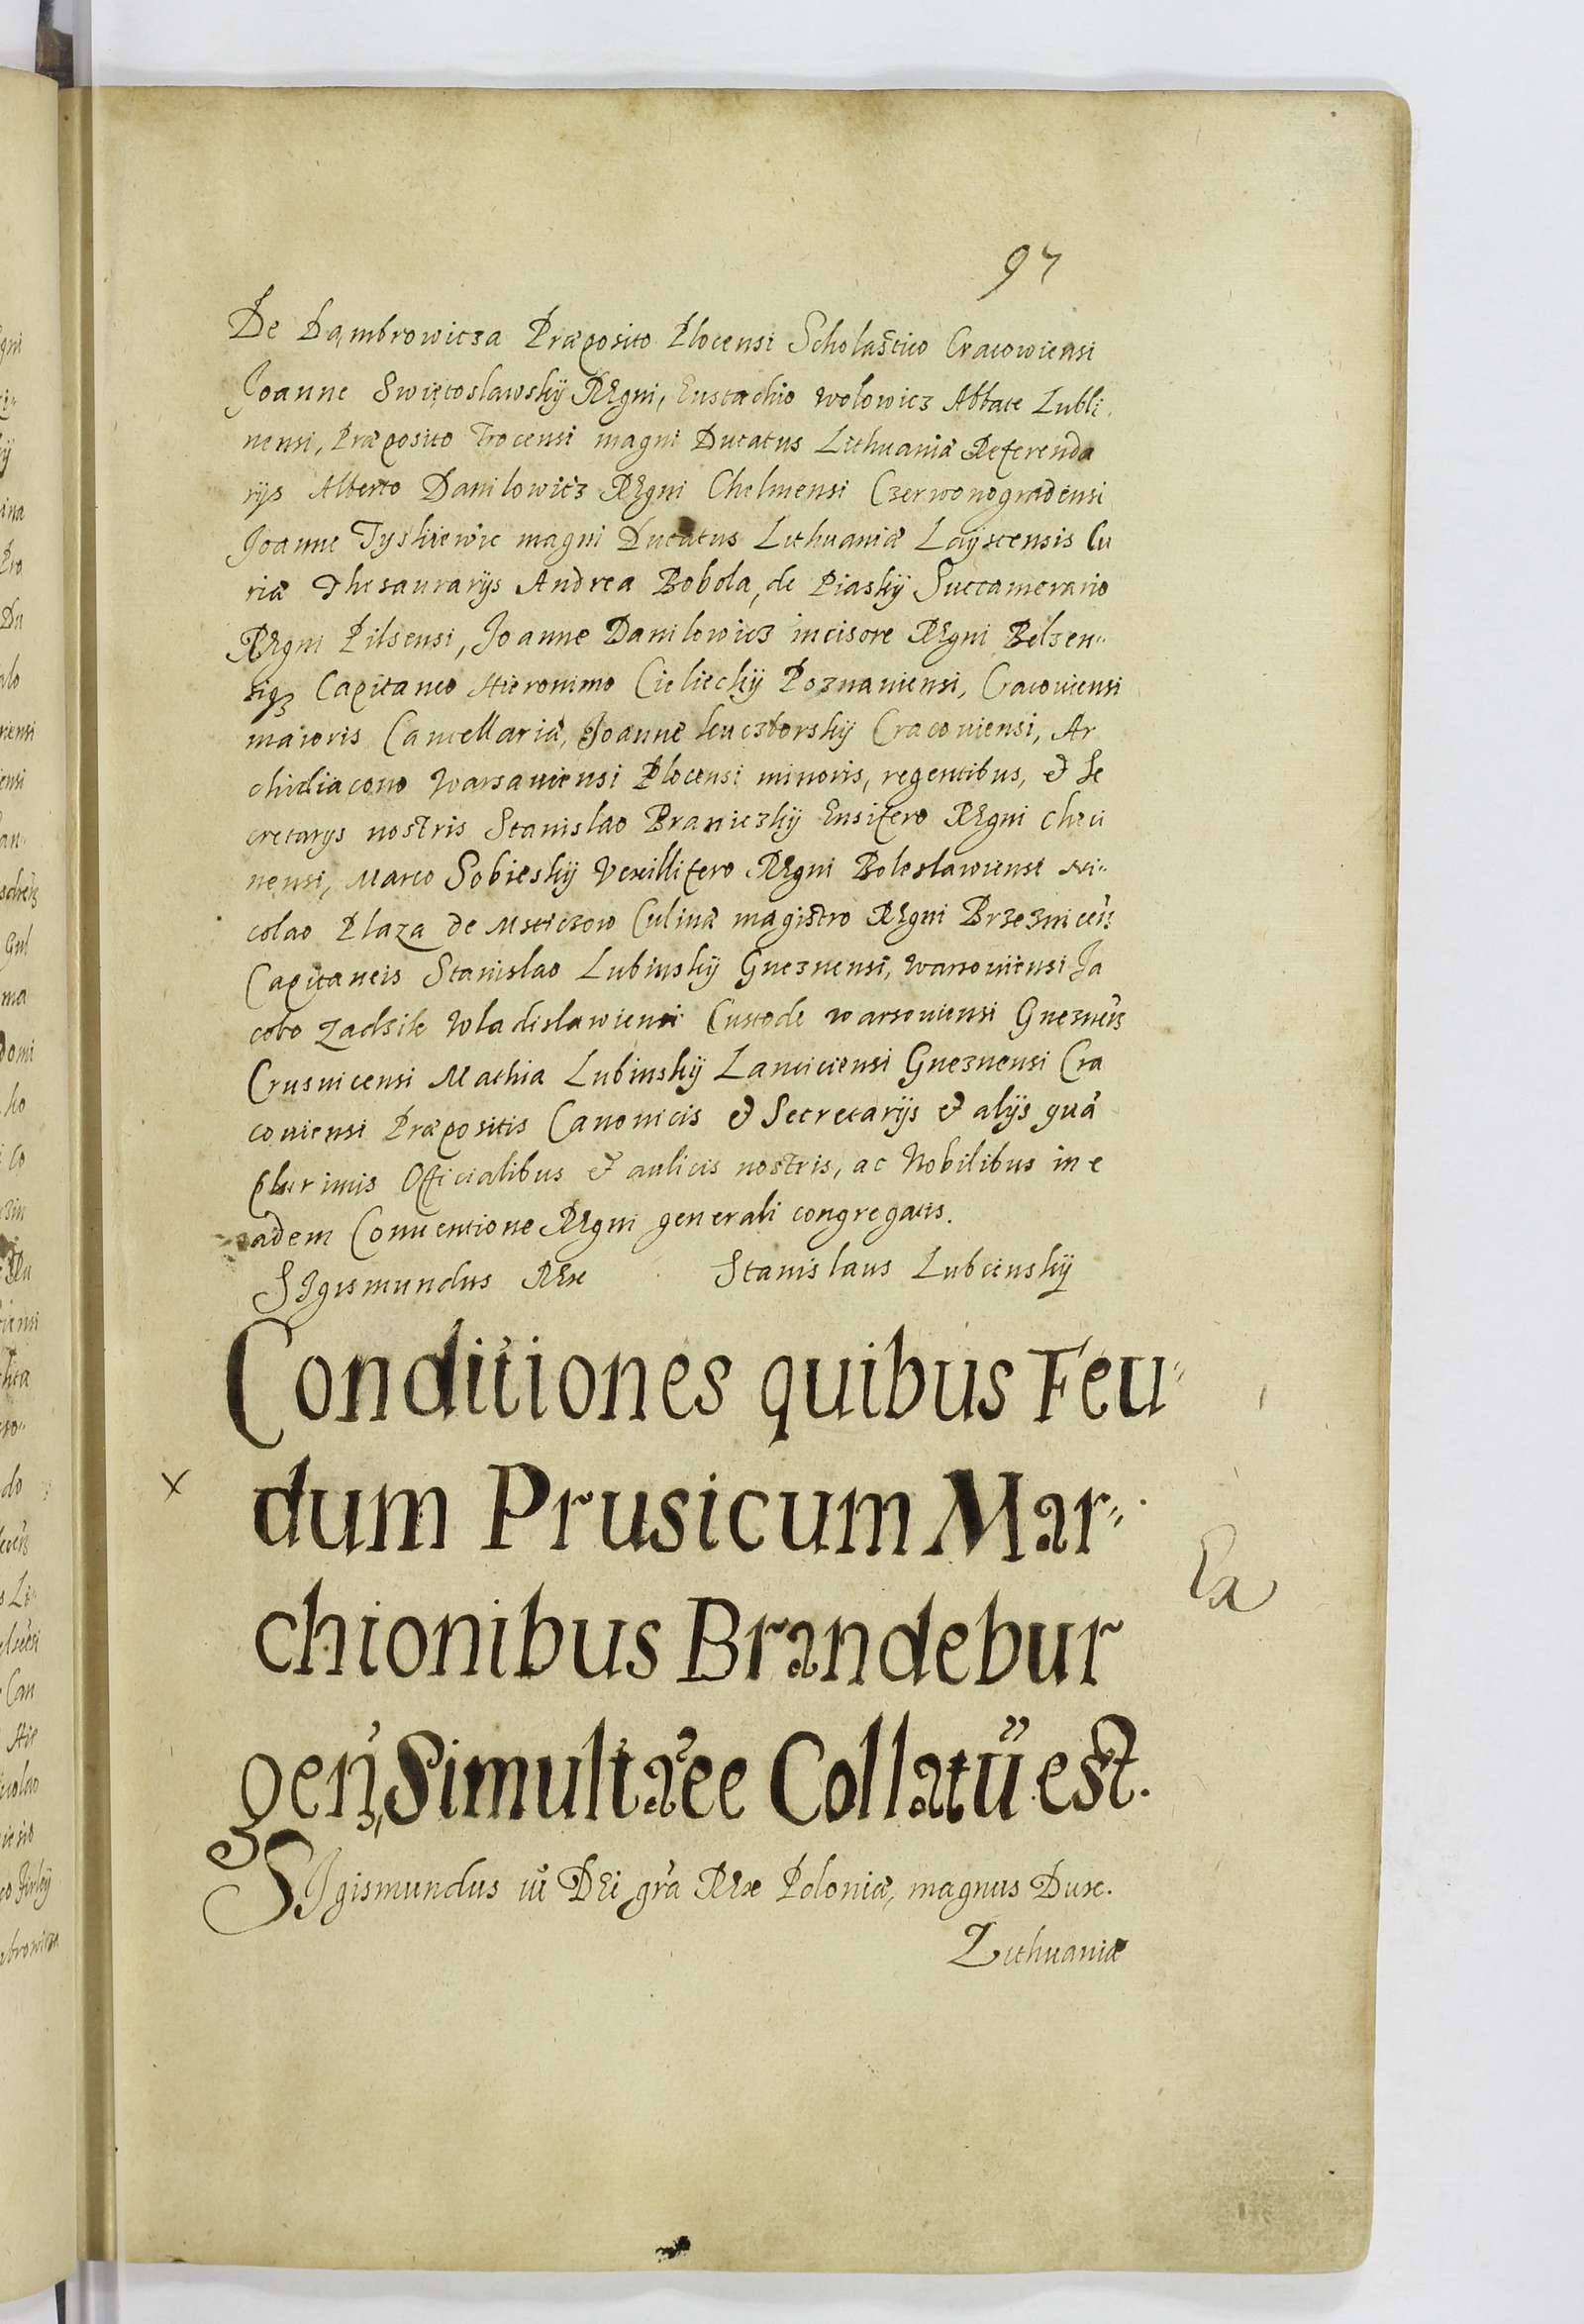 97
De Dambrowicza Præposito Plocensi Scholastico Cracowiensi
Joanne Swiętoslawskÿ REgni, Eustachio Wolowicz Abbate Lubli
nensi, Præposito Trocensi magni Ducatus Lithuaniæ Referenda
rÿs Alberto Danilowicz REgni Chelmensi Czerwonogradensi
Joanne Tyskiewic magni Ducatus Lithuaniæ Layscensis Cu
riæ Thesaurarÿs Andrea Bobola, de Piaskÿ Succamerario
REgni Pilsensi, Joanne Danilowicz incisore REgni Belzen„
siqz Capitaneo Hieronimo Cielieckÿ Poznaniensi, Cracoviensi
maioris Cancellariæ, Joanne kuczborskÿ Cracoviensi, Ar
chidiacono Warsaviensi Plocensi minoris, regentibus, & Se
cretarÿs nostris Stanislao Braniczkÿ Ensifero REgni Checi
nensi, Marco Sobieskÿ Vexillifero REgni Boleslawiensi Ni„
colao Plaza de Msticzow Culinæ magistro REgni Brzeznicen̄
Capitaneis Stanislao Lubinskÿ Gneznensi, Warsoviensi Ja
cobo Zadzik Wladislawiensi Custode Warsoviensi Gneznen̄
Crusvicensi Mathia Lubinskÿ Lanciciensi Gneznensi Cra
coviensi Præpositis Canonicis & Secretarÿs & alÿs quā
plurimis Officialibus & aulicis nostris, ac Nobilibus in e
adem Conventione REgni generali congregatis.
SIgismundus REx Stanislaus Lubienskÿ
Conditiones quibus Feu„
x dum Prusicum Mar„
chionibus Brandebur
gen̄, Simultāee Collatū est.
SIgismundus iii DEi grā REx Poloniæ, magnus Dux.
Lithuaniæ